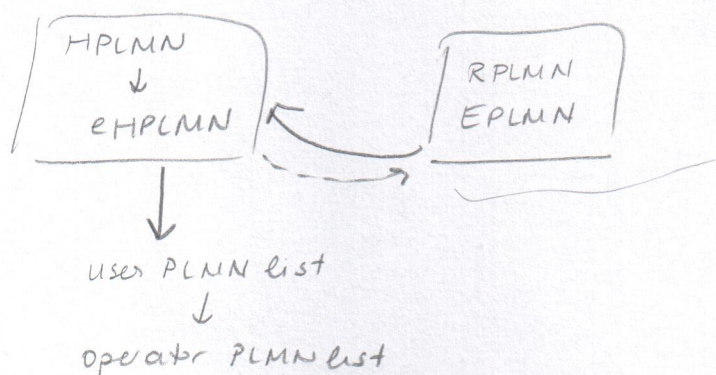 HPLMN
↓
eHPLMN
RPLMN
EPLMN
user PLMN list
↓
operator PLMN list